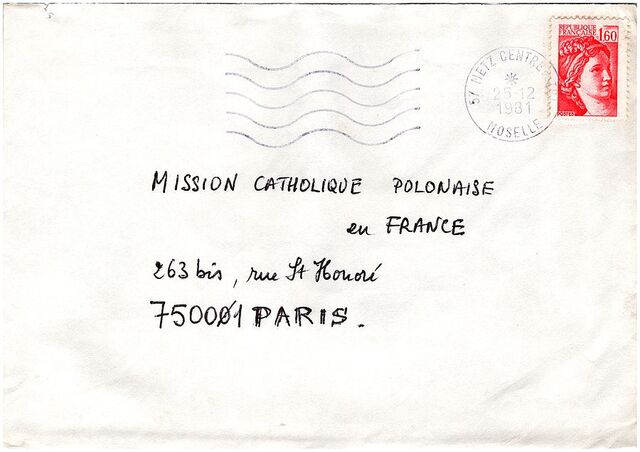 REPUBLIQUE
FRANÇAISE
1,60
POSTES
57 METZ CENTRE
25-12
1981
MOSELLE
MISSION CATHOLIQUE POLONAISE
en FRANCE
263 bis, rue St Honoré
750001 PARIS.